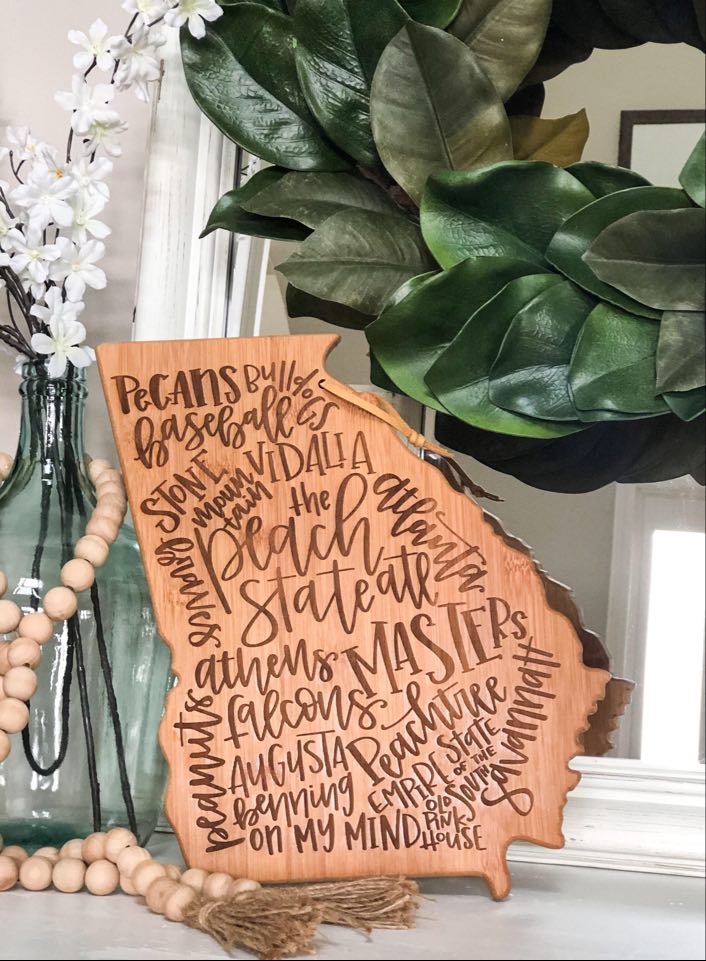 PeCANS
Bulldogs
baseball
STONE
mountain
VIDALIA
the
peach
State
atlanta
atl
swamp
athens
MASTERS
falcons
peanuts
AUGUSTA
Peachtree
savannah
benning
EMPIRE STATE
OF THE
SOUTH
ON MY MIND
OLD
PINK
HOUSE